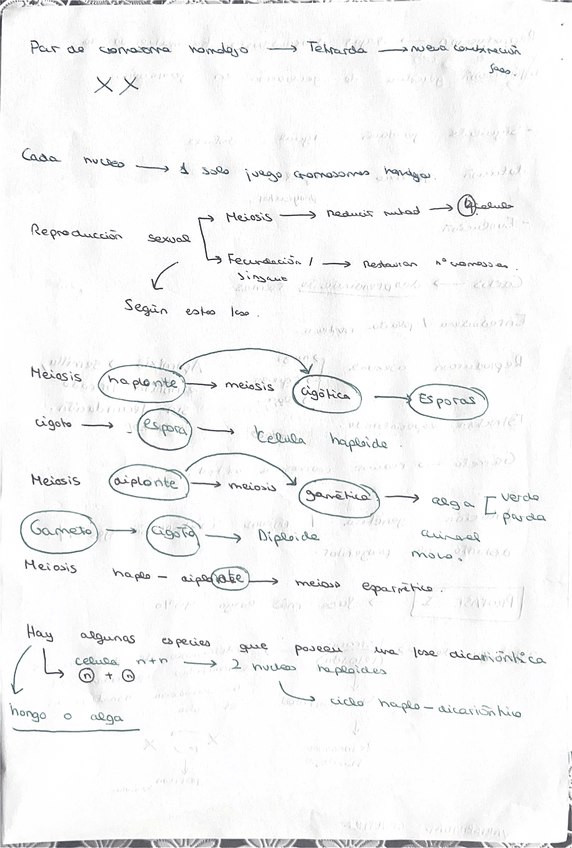 Par de cromosoma homólogo → Tetrada → nueva combinación
X X
Cada nucleo → 1 solo juego cromosomas homólogo.
Reproducción sexual
Meiosis → Reducir mitad → 4 celula
Fecundación / singamia → Restauran nº cromosomas.
Según estos
Meiosis haplonte → meiosis cigótica → Esporas
cigoto → espora → celula haploide.
Meiosis diplonte → meiosis gamética → alga [ verde parda
Gameto → cigoto → Diploide animal
Meiosis haplo - diplonte → meiosis esparnética.
Hay algunas especies que poseen una fase dicariöntica
celula n+n → 2 nucleos haploides
n + n
ciclo haplo-dicariöntico
hongo o alga